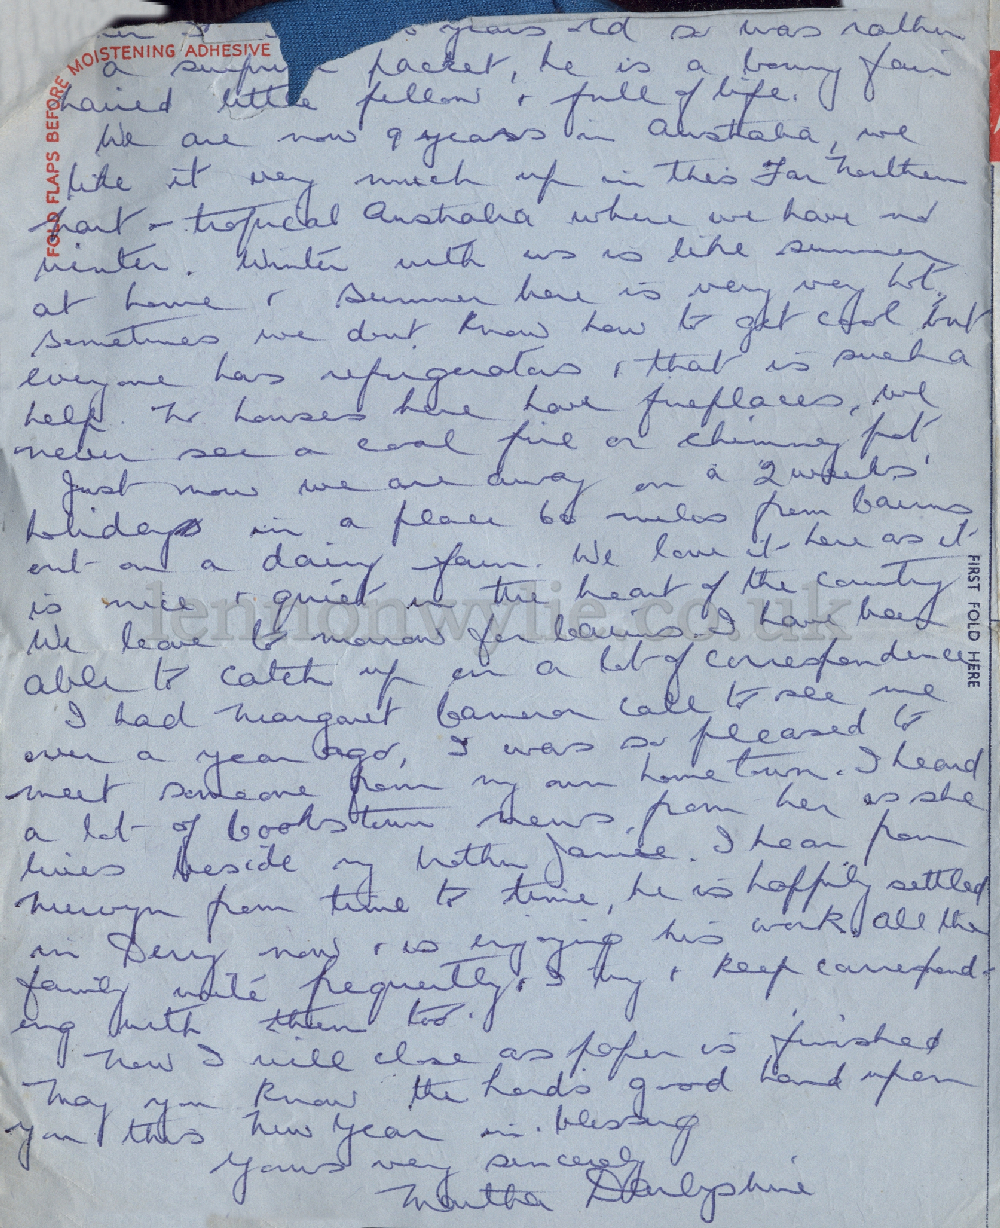 years old so was rather
a surprise packet, he is a bonny fair
haired little fellow & full of life.
We are now 9 years in Australia, we
like it very much up in this Far Northern
part - tropical Australia where we have no
winter. Winter with us is like summer
at home & summer here is very very hot,
sometimes we dont know how to get cool but
everyone has refrigerators & that is such a
help. No houses here have fireplaces, we
never see a coal fire or chimney pot.
Just now we are away on a 2 weeks'
holidays in a place 60 miles from Cairns
out on a dairy farm. We love it here as it
is nice & quiet in the heart of the country
We leave to morrow for Cairns. I have been
able to catch up on a lot of correspondence
I had Margaret Cameron call to see me
over a year ago, I was so pleased to
meet someone from my own home town. I heard
a lot of Cookstown news, from her as she
lives beside my brother James. I hear from
Mervyn from time to time, he is happily settled
in Derry now & is enjoying his work. All the
family write frequently & I try & keep correspond-
ing with them too.
Now I will close as paper is finished
May you know the Lords good hand upon
you this New Year in blessing
Yours very sincerely
Martha Darbyshire
FOLD FLAPS BEFORE MOISTENING ADHESIVE
FIRST FOLD HERE
lennonwylie.co.uk